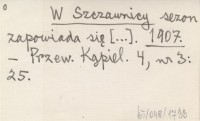 W Szczawnicy sezon
zapowiada się [...]. 1907.
– Przew. Kąpiel. 4, nr 3:
25.
67/048/1788